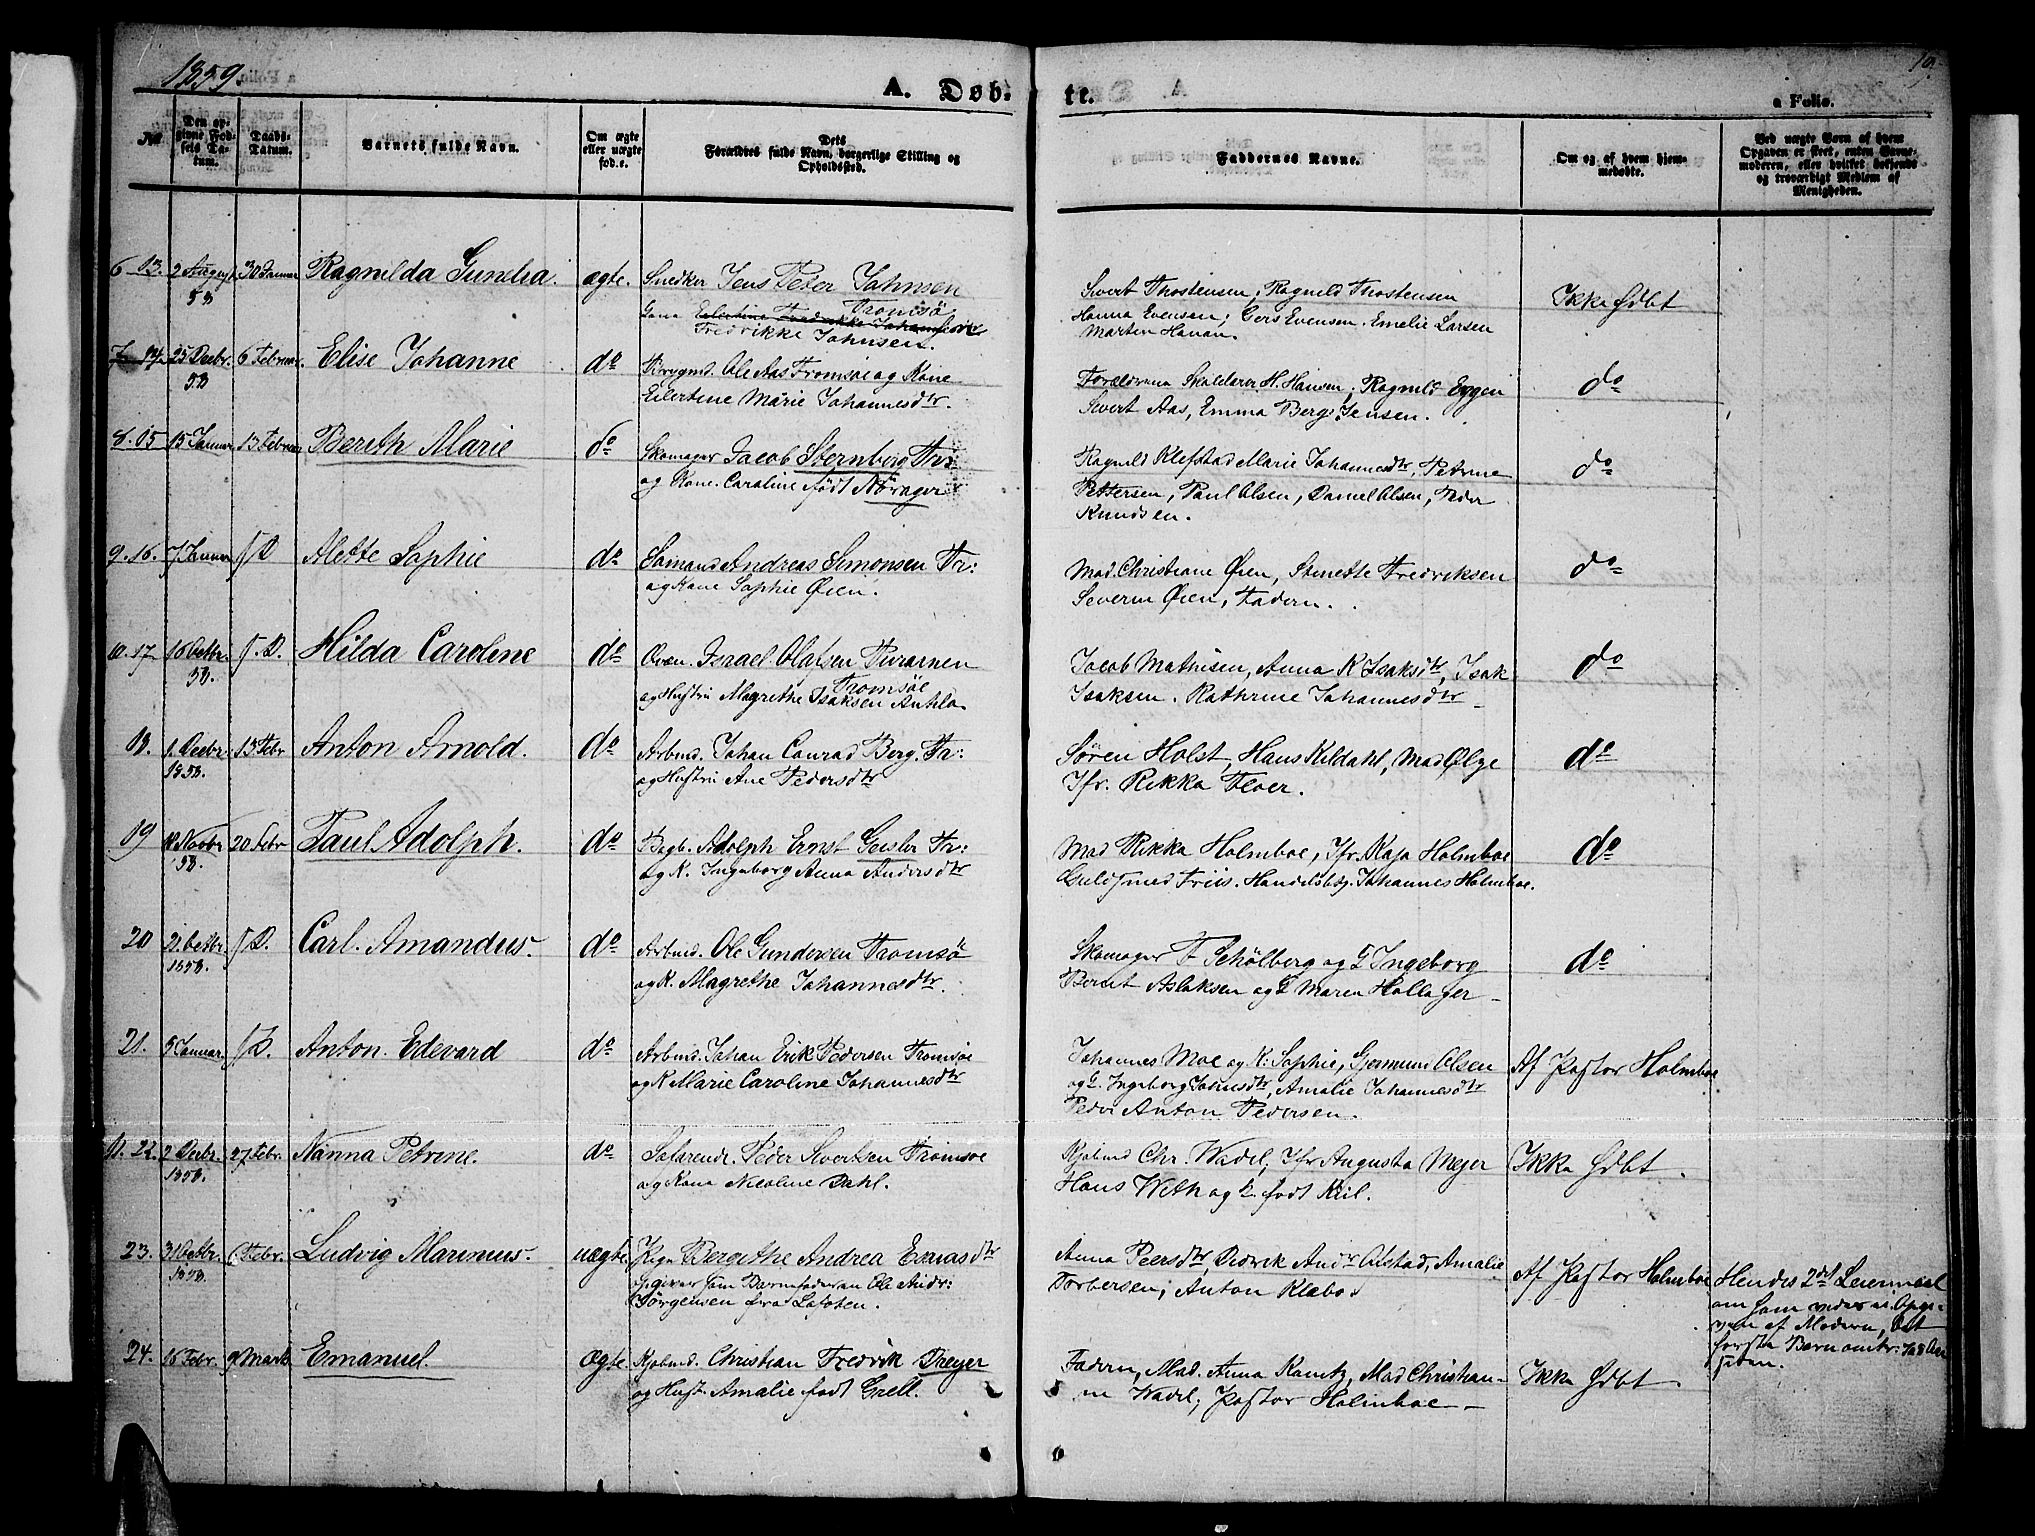 1859.
A. Døb-
te.
a Folio.
19.
No
Den op-
givne Fød-
sels Da-
tum.
Daabs-
Datum.
Barnets fulde Navn.
Om ægte
eller uægte
fød.e.
Dets
Forældres fulde Navn, borgerlige Stilling og
Opholdssted.
Faddernes Navne.
Om og af hvem hjem-
medøbte.
Ved uægte Børn af hvem
Opgaven er skeet, enten Barne-
moderen, eller hvilket bekjendt
og troværdigt Medlem af
Menigheden.
6 13. 2 August 30 Januar Ragnilda Gunelia. ægte. Snedker Jens Peter Johnsen
58 Tromsø
Fredrikke Johnsen.
Sivert Thostensen, Ragnild Thostensen Ikke Hdbt
Hanna Evensen, Gers Evensen. Emelie Larsen
Martin Hanan.
7 14. 25 Decbr. 6 Februar. Elise Johanne do Brygmd. Ole Aas Tromsøe og Kone
58 Eilertine Marie Johannesdtr.
Forældrene Skolelærer H. Hansen, Ragnild Eggen do
Sivert Aas, Emma Bergs Jensen.
8. 15 15 Januar 13 Februar Bereth Marie do Skomager Jacob Sternberg Tr:
og Kone. Caroline født Nørager
Ragnild Klefstad Marie Johannesdtr, Petrine do
Pettersen, Paul Olsen, Daniel Olsen, Peder
Knudsen.
9. 16. 7 Januar s D Alette Sophie do Sømand Andreas Simonsen Tr:
og Kone Sophie Øien.
Mad. Christiane Øien, Stinette Fredriksen do
Severin Øien, Faderen.
10. 17 16 Octbr. s. D. Hilda Caroline do Qven. Israel Olafsen Purarnen
58. Tromsøe
og Hustru Magrethe Isaksen Antila
Jacob Mathisen, Anna K Isaksdtr, Isak do
Isaksen. Kathrine Johannesdtr
18. 1. Decbr. 13 Febr Anton Arnold. do Arbmd. Johan Conrad Berg. Tr:
1858. og Hustru Ane Pedersdtr
Søren Holst, Hans Kildahl, Mad Ølge do
Jfr. Rikka Floer.
19 18 Novbr 20 Febr Paul Adolph. do Bagb. Adolph Ernst Geisler Tr:
58. og K. Ingeborg Anna Andersdtr
Mad Rikka Holmboe, Jfr. Kaja Holmboe do
Guldsmed Friis. Handelsbg. Johannes Holmboe.
20 21. Octbr. s. D. Carl. Amandus. do Arbmd. Ole Gundersen Tromsø
1858. og K. Magrethe Johannesdtr.
Skomager F Schölberg og K Ingeborg do
Bernt Aslaksen og K Maren Hollager
21. 5 Januar s. D. Anton. Edevard do Arbmd. Johan Erik Pedersen Tromsøe
og K Marie Caroline Johannesdtr
Johannes Moe og K: Sophie, Gjermund Olsen Af Pastor Holmboe
og K. Ingeborg Joensdtr, Amalie Johannesdtr
Peder Anton Pedersen.
11. 22. 2 Decbr. 27 Febr. Nanna Petrine. do Peder Sivertsen Tromsøe
1858. og Kone Nicoline Dahl.
Kjøbmd Chr. Wadel, Jfr Augusta Mejer Ikke Hdbt.
Hans Weth og K. født Kiil.
23. 31 Octbr. Febr. Ludvig Marinius. uægte. Pigen Bergithe Andrea Esaiasdtr
1858. Opgiver som Barnefaderen Ole Andr:
Jørgensen fra Lofoten.
Anna Peersdtr, Didrik Andr Olstad, Amalie Af Pastor Holmboe
Torbersen, Anton Klæbo.
Hendes 2det Leiermaal
om som Opgi-
ven af Moderen, det
første Barn omtr: 7 a 8 Aar
siden.
24. 16 Febr. 9 Marts Emanuel. ægte. Kjøbmd. Christian Fredrik Dreyer
og Hust. Amalie født Grell.
Faderen, Mad. Anna Kamtz, Mad Christian- Ikke Hdbt.
m Wadel, Pastor Holmboe